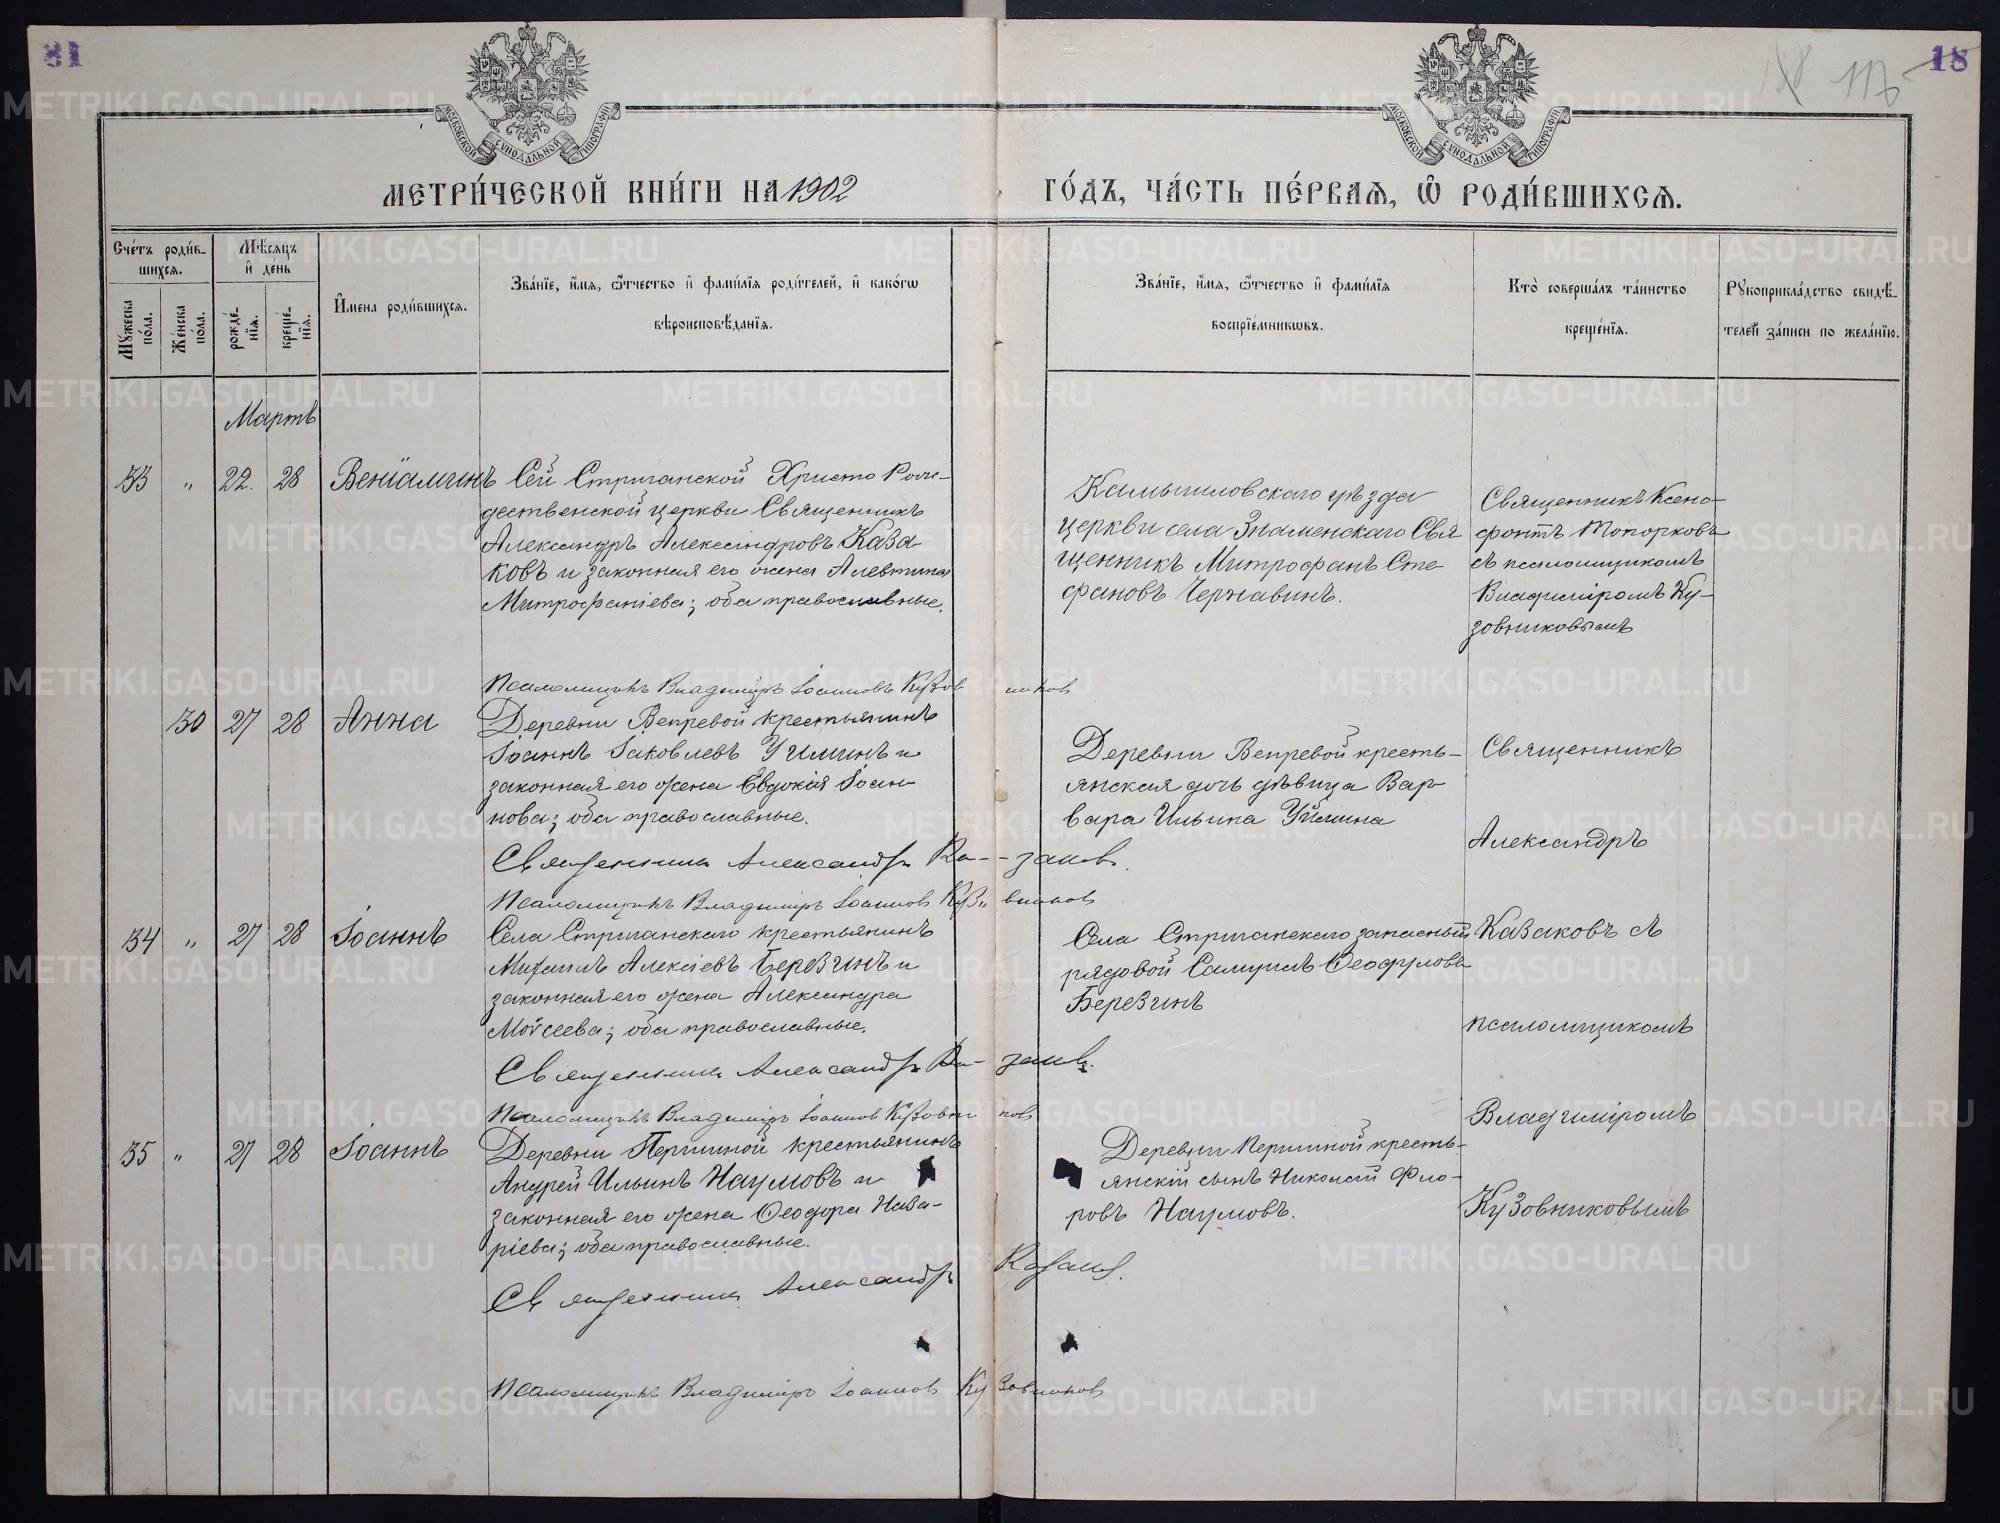 81
18
116
МОСКОВСКОЙ СѴНОДАЛЬНОЙ ТИПОГРАФІИ
МОСКОВСКОЙ СѴНОДАЛЬНОЙ ТИПОГРАФІИ
МЕТРИ́ЧЕСКОЙ КНИ́ГИ НА 1902
ГО́ДЪ, ЧА́СТЬ ПЕ́РВАѦ, Ѿ РОДИ́ВШИХСѦ.
Сче́тъ роди́в-
шихсѧ.
Мѣ́сѧцъ
и҆ де́нь
Мꙋ́жеска по́ла.
Же́нска по́ла.
рожде́нїѧ.
креще́нїѧ.
И҆мена роди́вшихсѧ.
Зва́нїе, и҆́мѧ, ѻ҆́тчество и҆ фами́лїѧ роди́телей, и҆ како́гѡ
вѣроисповѣ́данїѧ.
Зва́нїе, и҆́мѧ, ѻ҆́тчество и҆ фами́лїѧ
воспрїе́мникѡвъ.
Кто̀ соверша́лъ та́инство
креще́нїѧ.
Рꙋкоприкла́дство свидѣ́-
телей за́писи по жела́нїю.
Мартъ
33 " 22. 28 Веніаминъ
Сей Стриганской Христо Рож-
дественской церкви Священникъ
Александръ Александровъ Каза
ковъ и законная его жена Алевтина
Митрофаніева; оба православные.
Камышловскаго уѣзда
церкви села Знаменскаго Свя
щенникъ Митрофанъ Сте
фановъ Чернавинъ.
Священникъ Ксено-
фонтъ Топорковъ
съ псаломщикомъ
Владиміромъ Ку-
зовниковымъ
Псаломщикъ Владиміръ Іоанновъ Кузовников
30 27 28 Анна
Деревни Вепревой крестьянинъ
Іоаннъ Іаковлевъ Уйминъ и
законная его жена Евдокія Іоан
нова; оба православные.
Деревни Вепревой кресть-
янская дочь дѣвица Вар
вара Ильина Уймина
Священникъ
Александръ
Священник Александръ Ка-заков.
Псаломщикъ Владиміръ Іоаннов Кузовников
34 " 27 28 Іоаннъ
Села Стриганскаго крестьянинъ
Михаилъ Алексіевъ Березинъ и
законная его жена Александра
Моѵсеева; оба православные.
Села Стриганскаго запасный
рядовой Самуилъ Ѳеофуловъ
Березинъ
Казаковъ съ
псаломщикомъ
Священник Александръ Ка-заков.
Псаломщикъ Владиміръ Іоаннов Кузовников
35 " 27 28 Іоаннъ
Деревни Першиной крестьянинъ
Андрей Ильинъ Наумовъ и
законная его жена Ѳеодора Наза-
ріева; оба православные.
Деревни Першиной кресть-
янскій сынъ Николай Фло-
ровъ Наумовъ.
Владиміромъ
Кузовниковымъ
Священник Александръ Казаков.
Псаломщикъ Владиміръ Іоаннов Кузовников
METRIKI.GASO-URAL.RU